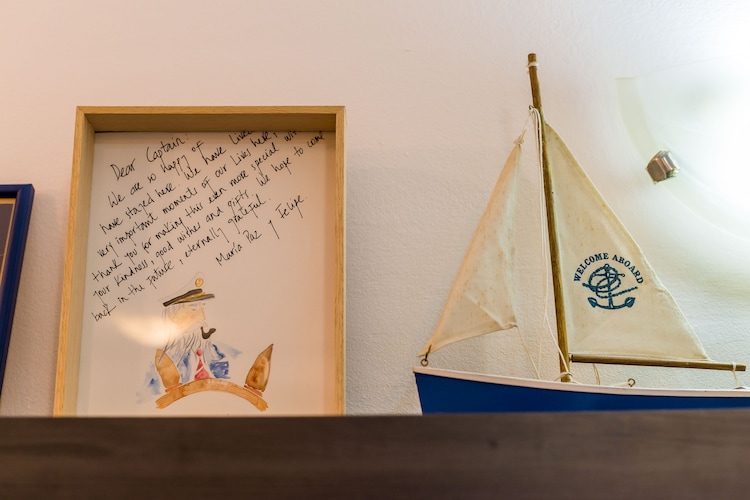 Dear Captain:
We are so happy of
have stayed here. We have lived
very important moments of our lives here,
thank you for making this even more special with
your kindness, good wishes and gifts. We hope to come
back in the future, eternally grateful.
María Paz y Felipe
WELCOME ABOARD